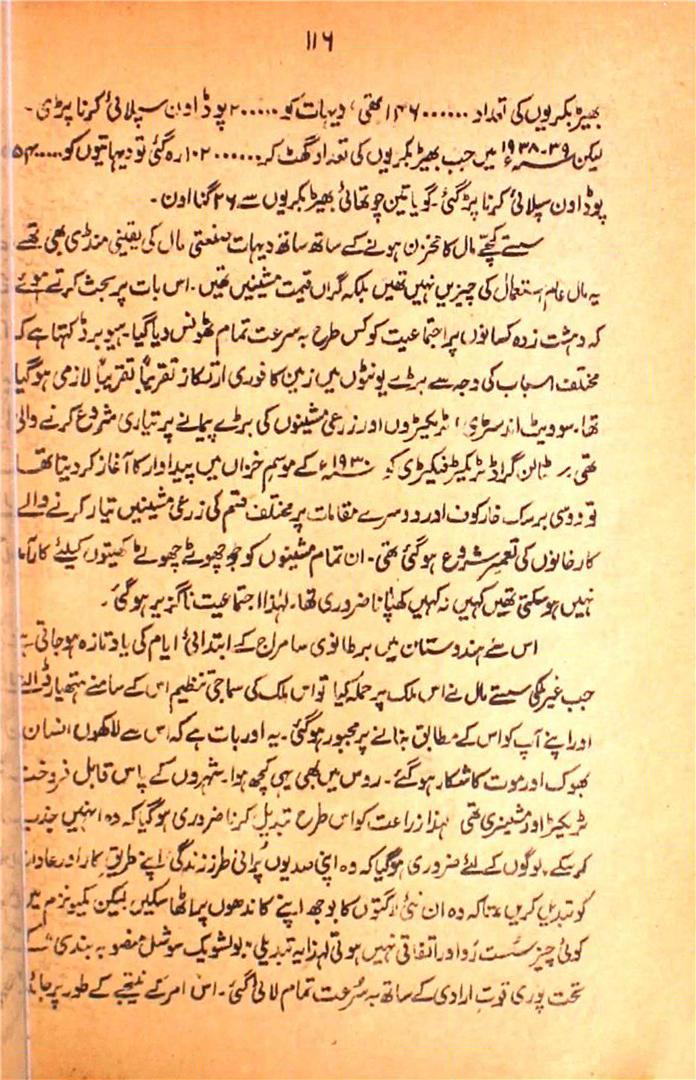 ۱۱۶
بھیڑ بکریوں کی تعداد ۱۴۶۰۰۰۰۰۰ تھی، دیہات کو ۲۰۰۰۰۰ پوڈ اون سپلائی کرنا پڑی۔
لیکن ۳۹-۱۹۳۸ء میں جب بھیڑ بکریوں کی تعداد گھٹ کر ۱۰۲۰۰۰۰۰۰ رہ گئی تو دیہاتیوں کو
پوڈ اون سپلائی کرنا پڑ گئی۔ گویا تین چوتھائی بھیڑ بکریوں سے ۲۶ گنا اون۔
سستے کچے مال کا مخزن ہونے کے ساتھ ساتھ دیہات صنعتی مال کی یقینی منڈی بھی تھے
یہ مال عام استعمال کی چیزیں نہیں تھیں بلکہ گراں قیمت مشینیں تھیں۔ اس بات پر بحث کرتے ہوئے
کہ دہشت زدہ کسانوں پر اجتماعیت کو کس طرح بہ سرعت تمام ٹھونس دیا گیا۔ ہیوبرڈ کہتا ہے کہ
مختلف اسباب کی وجہ سے بڑے یونٹوں میں زمین کا فوری ارتکاز تقریباً تقریباً لازمی ہو گیا
تھا۔ سوویٹ انڈسٹری، ٹریکٹروں اور زرعی مشینوں کی بڑے پیمانے پر تیاری شروع کرنے والی
تھی۔ سٹالن گراڈ ٹریکٹر فیکٹری کو ۱۹۳۰ء کے موسم خزاں میں پیداوار کا آغاز کر دینا تھا
تو دوی برسک خارکوف اور دوسرے مقامات پر مختلف قسم کی زرعی مشینیں تیار کرنے والے
کارخانوں کی تعمیر شروع ہو گئی تھی۔ ان تمام مشینوں کو جو چھوٹے چھوٹے کھیتوں کیلئے
نہیں ہو سکتی تھیں کہیں نہ کہیں کھپانا ضروری تھا۔ لہٰذا اجتماعیت ناگزیر ہو گئی۔
اس سے ہندوستان میں برطانوی سامراج کے ابتدائی ایام کی یاد تازہ ہو جاتی ہے
جب غیر ملکی سستے مال نے اس ملک پر حملہ کیا تو اس ملک کی سماجی تنظیم اس کے سامنے ہتھیار ڈالنے
اور اپنے آپ کو اس کے مطابق بنانے پر مجبور ہو گئی۔ یہ اور بات ہے کہ اس سے لاکھوں انسان
بھوک اور موت کا شکار ہو گئے۔ روس میں بھی یہی کچھ ہوا۔ شہروں کے پاس قابل فروخت
ٹریکٹر اور مشینری تھی لہذا زراعت کو اس طرح تبدیل کرنا ضروری ہو گیا کہ وہ انہیں جذب
کر سکے۔ لوگوں کے لئے ضروری ہو گیا کہ وہ اپنی صدیوں پرانی طرز زندگی اپنے طریق کار اور
کو تبدیل کریں، تاکہ وہ ان نئی لاگتوں کا بوجھ اپنے کاندھوں پر اٹھا سکیں لیکن کمیونزم میں
کوئی چیز سست رو اور اتفاقی نہیں ہوتی لہٰذا یہ تبدیلی "بولشویک سوشل منصوبہ بندی" کے
تحت پوری قوت ارادی کے ساتھ بہ سرعت تمام لائی گئی۔ اس امر کے نتیجے کے طور پر